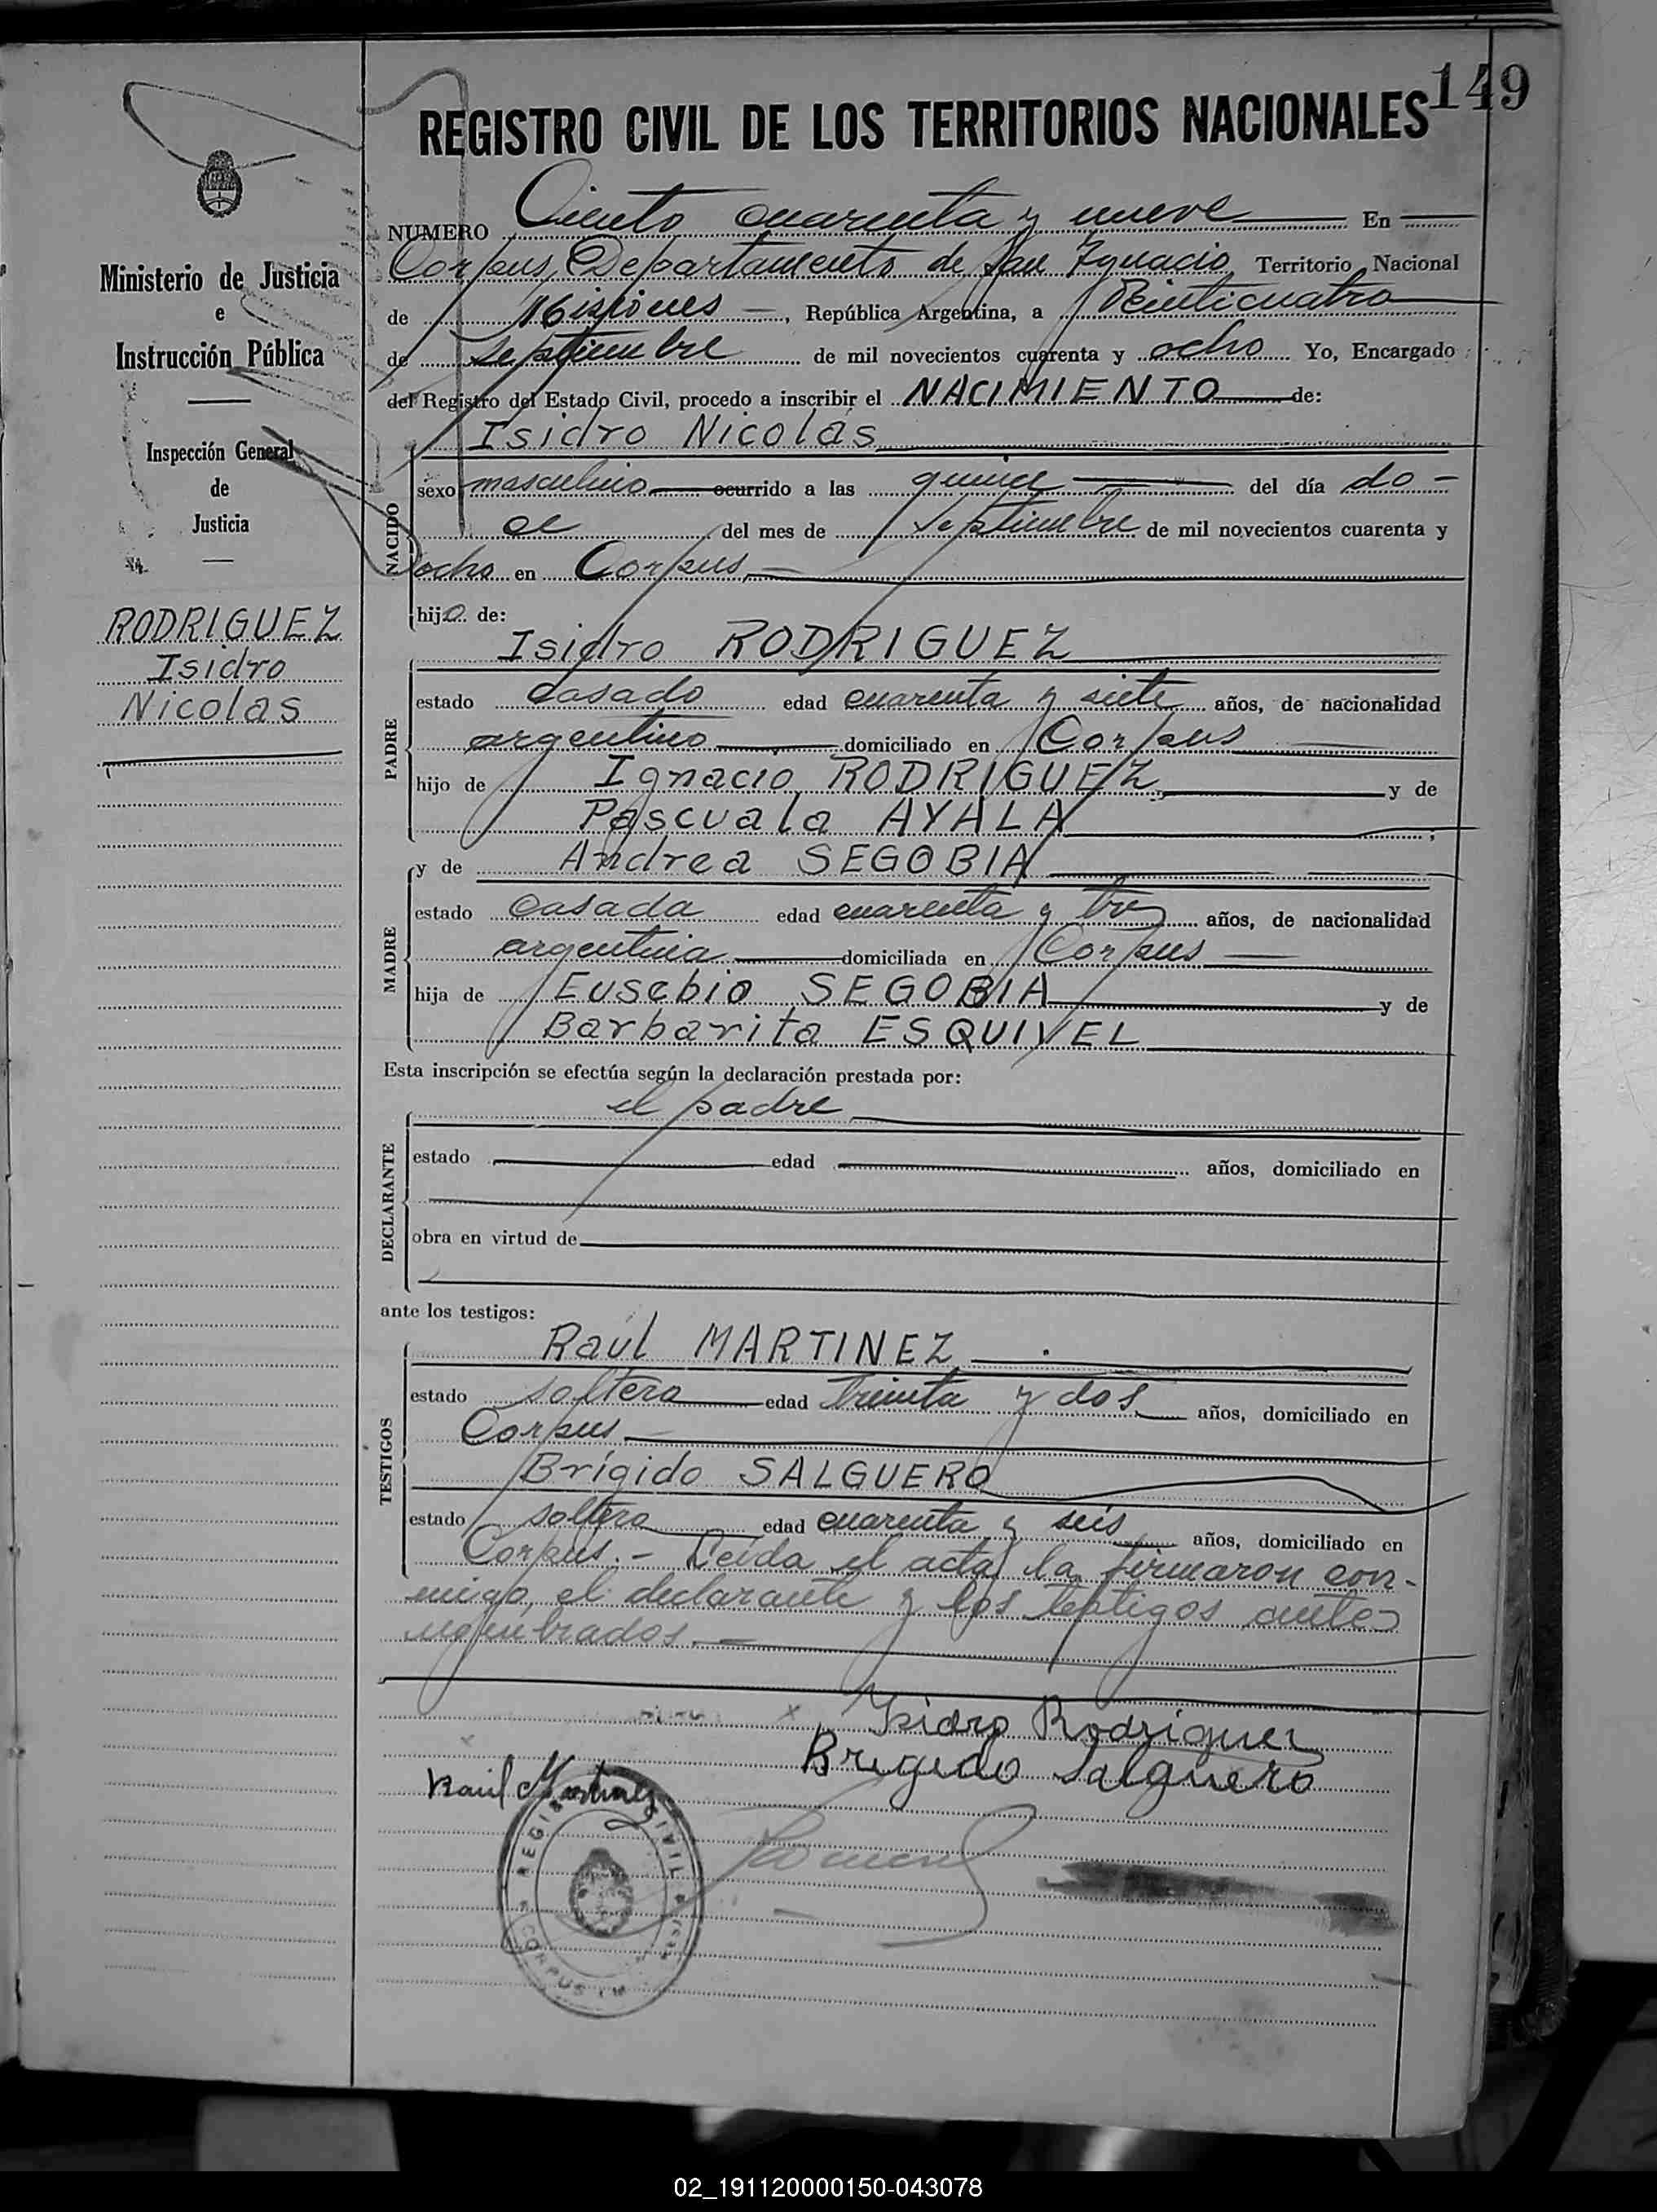 149
REGISTRO CIVIL DE LOS TERRITORIOS NACIONALES
NUMERO Ciento cuarenta y nueve En
Corpus, Departamento de San Ignacio Territorio Nacional
de Misiones, República Argentina, a Veinticuatro
de septiembre de mil novecientos cuarenta y ocho Yo, Encargado
del Registro del Estado Civil, procedo a inscribir el NACIMIENTO de:
Isidro Nicolás
NACIDO
sexo masculino ocurrido a las quince del día do-
ce del mes de septiembre de mil novecientos cuarenta y
ocho en Corpus
hijo de:
PADRE
Isidro RODRIGUEZ
estado casado edad cuarenta y siete años, de nacionalidad
argentino domiciliado en Corpus
hijo de Ignacio RODRIGUEZ y de
Pascuala AYALA ;
MADRE
y de Andrea SEGOBIA
estado casada edad cuarenta y tres años, de nacionalidad
argentina domiciliada en Corpus
hija de Eusebio SEGOBIA y de
Barbarita ESQUIVEL
Esta inscripción se efectúa según la declaración prestada por:
DECLARANTE
el padre
estado edad años, domiciliado en
obra en virtud de
ante los testigos:
TESTIGOS
Raúl MARTINEZ
estado soltero edad treinta y dos años, domiciliado en
Corpus
Brígido SALGUERO
estado soltero edad cuarenta y seis años, domiciliado en
Corpus.- Leída el acta, la firmaron con-
migo, el declarante y los testigos antes
nombrados.-
Isidro Rodriguez
Brigido Salguero
Raúl Martinez
REGISTRO CIVIL
CORPUS
Ministerio de Justicia
e
Instrucción Pública
Inspección General
de
Justicia
RODRIGUEZ
Isidro
Nicolas
02_191120000150-043078